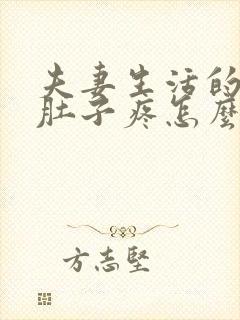 夫妻生活的
肚子疼怎麼
方志堅